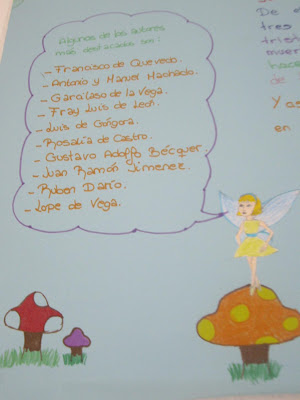 Algunos de los autores
más destacados son:
- Francisco de Quevedo.
- Antonio y Manuel Machado.
- Garcilaso de la Vega.
- Fray Luis de León.
- Luis de Góngora.
- Rosalía de Castro.
- Gustavo Adolfo Bécquer.
- Juan Ramón Jimenez.
- Ruben Darío.
- Lope de Vega.
De e
tres
trist
muer
hace
de
Y as
en